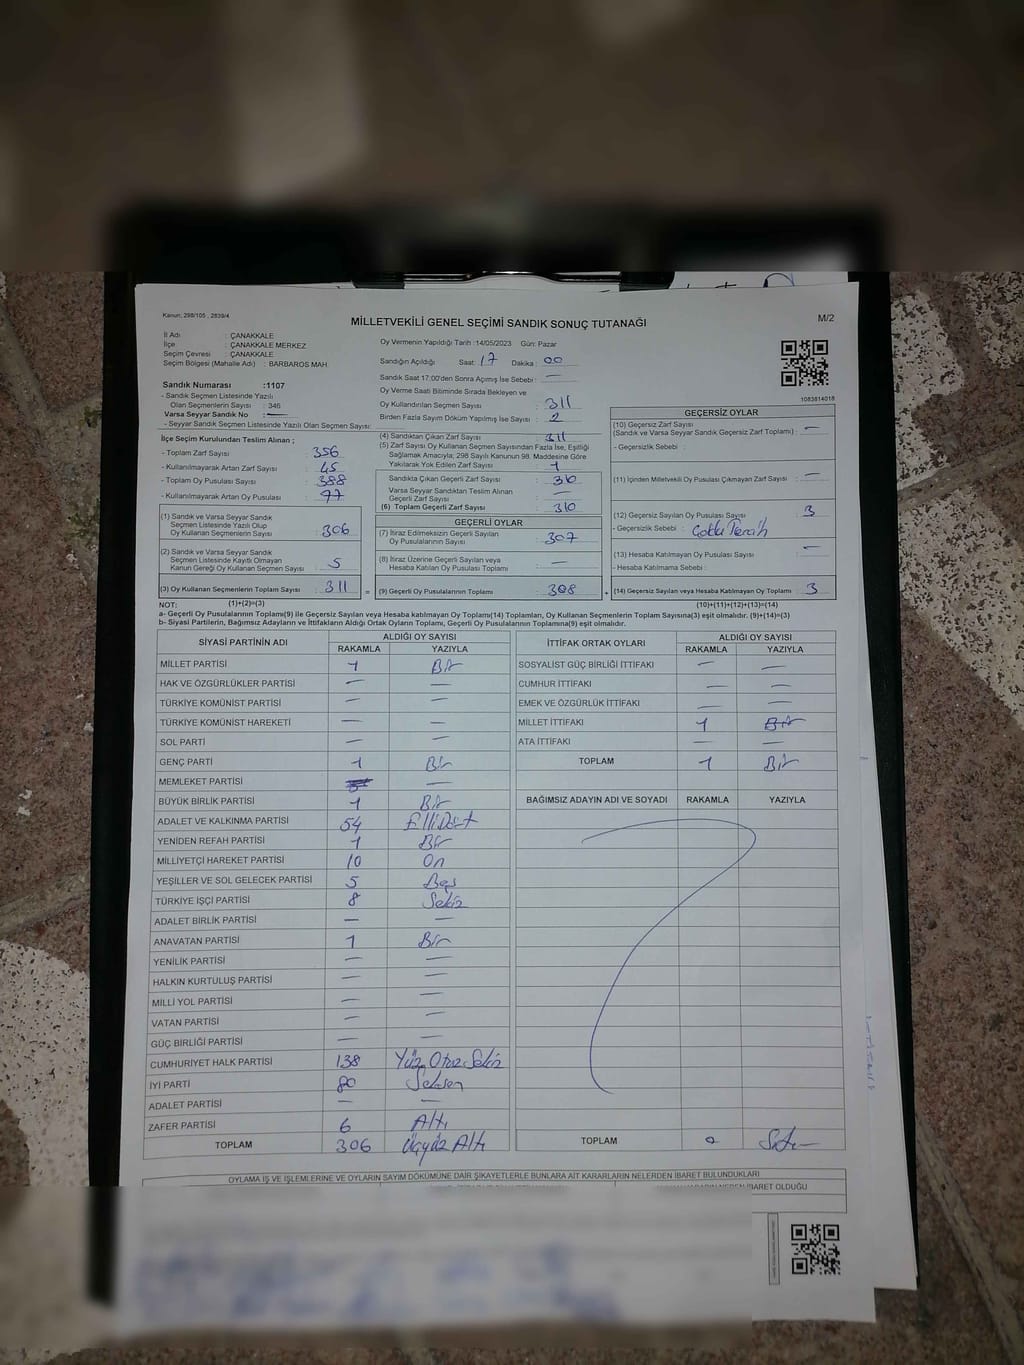 Kanun: 298/105 , 2839/4
MİLLETVEKİLİ GENEL SEÇİMİ SANDIK SONUÇ TUTANAĞI
M/2
İl Adı : ÇANAKKALE
İlçe : ÇANAKKALE MERKEZ
Seçim Çevresi : ÇANAKKALE
Seçim Bölgesi (Mahalle Adı) : BARBAROS MAH.
Sandık Numarası :1107
- Sandık Seçmen Listesinde Yazılı
Olan Seçmenlerin Sayısı : 346
Varsa Seyyar Sandık No : —
- Seyyar Seçmen Listesinde Yazılı Olan Seçmen Sayısı:
Oy Vermenin Yapıldığı Tarih : 14/05/2023 Gün: Pazar
Sandığın Açıldığı Saat: 17 Dakika : 00
Sandık Saat 17:00'den Sonra Açımış İse Sebebi : —
Oy Verme Saati Bitiminde Sırada Bekleyen ve
Oy Kullandırılan Seçmen Sayısı : 311
Birden Fazla Sayım Döküm Yapılmış İse Sayısı : 2
1083814018
İlçe Seçim Kurulundan Teslim Alınan ;
- Toplam Zarf Sayısı : 356
- Kullanılmayarak Artan Zarf Sayısı : 45
- Toplam Oy Pusulası Sayısı : 388
- Kullanılmayarak Artan Oy Pusulası : 77
(1) Sandık ve Varsa Seyyar Sandık
Seçmen Listesinde Yazılı Olup
Oy Kullanan Seçmenlerin Sayısı : 306
(2) Sandık ve Varsa Seyyar Sandık
Seçmen Listesinde Kayıtlı Olmayan
Kanun Gereği Oy Kullanan Seçmen Sayısı : 5
(3) Oy Kullanan Seçmenlerin Toplam Sayısı : 311
(1)+(2)=(3)
(4) Sandıktan Çıkan Zarf Sayısı : 311
(5) Zarf Sayısı Oy Kullanan Seçmen Sayısından Fazla İse, Eşitliği
Sağlamak Amacıyla; 298 Sayılı Kanunun 98. Maddesine Göre
Yakılarak Yok Edilen Zarf Sayısı : 1
Sandıkta Çıkan Geçerli Zarf Sayısı : 310
Varsa Seyyar Sandıktan Teslim Alınan
Geçerli Zarf Sayısı : —
(6) Toplam Geçerli Zarf Sayısı : 310
GEÇERLİ OYLAR
(7) İtiraz Edilmeksizin Geçerli Sayılan
Oy Pusulalarının Sayısı : 307
(8) İtiraz Üzerine Geçerli Sayılan veya
Hesaba Katılan Oy Pusulası Toplamı : —
= (9) Geçerli Oy Pusulalarının Toplamı : 308
GEÇERSİZ OYLAR
(10) Geçersiz Zarf Sayısı
(Sandık ve Varsa Seyyar Sandık Geçersiz Zarf Toplamı) : —
- Geçersizlik Sebebi :
(11) İçinden Milletvekili Oy Pusulası Çıkmayan Zarf Sayısı : —
(12) Geçersiz Sayılan Oy Pusulası Sayısı : 3
- Geçersizlik Sebebi : Çoklu Tercih
(13) Hesaba Katılmayan Oy Pusulası Sayısı : —
- Hesaba Katılmama Sebebi :
+ (14) Geçersiz Sayılan veya Hesaba Katılmayan Oy Toplamı : 3
(10)+(11)+(12)+(13)=(14)
NOT:
a- Geçerli Oy Pusulalarının Toplamı(9) ile Geçersiz Sayılan veya Hesaba katılmayan Oy Toplamı(14) Toplamları, Oy Kullanan Seçmenlerin Toplam Sayısına(3) eşit olmalıdır. (9)+(14)=(3)
b- Siyasi Partilerin, Bağımsız Adayların ve İttifakların Aldığı Ortak Oyların Toplamı, Geçerli Oy Pusulalarının Toplamına(9) eşit olmalıdır.
SİYASİ PARTİNİN ADI ALDIĞI OY SAYISI
RAKAMLA YAZIYLA
MİLLET PARTİSİ 1 Bir
HAK VE ÖZGÜRLÜKLER PARTİSİ — —
TÜRKİYE KOMÜNİST PARTİSİ — —
TÜRKİYE KOMÜNİST HAREKETİ — —
SOL PARTİ — —
GENÇ PARTİ 1 Bir
MEMLEKET PARTİSİ —
BÜYÜK BİRLİK PARTİSİ 1 Bir
ADALET VE KALKINMA PARTİSİ 54 Elli Dört
YENİDEN REFAH PARTİSİ 1 Bir
MİLLİYETÇİ HAREKET PARTİSİ 10 On
YEŞİLLER VE SOL GELECEK PARTİSİ 5 Beş
TÜRKİYE İŞÇİ PARTİSİ 8 Sekiz
ADALET BİRLİK PARTİSİ — —
ANAVATAN PARTİSİ 1 Bir
YENİLİK PARTİSİ — —
HALKIN KURTULUŞ PARTİSİ — —
MİLLİ YOL PARTİSİ — —
VATAN PARTİSİ — —
GÜÇ BİRLİĞİ PARTİSİ — —
CUMHURİYET HALK PARTİSİ 138 Yüz Otuz Sekiz
İYİ PARTİ 80 Seksen
ADALET PARTİSİ — —
ZAFER PARTİSİ 6 Altı
TOPLAM 306 Üçyüz Altı
İTTİFAK ORTAK OYLARI ALDIĞI OY SAYISI
RAKAMLA YAZIYLA
SOSYALİST GÜÇ BİRLİĞİ İTTİFAKI — —
CUMHUR İTTİFAKI — —
EMEK VE ÖZGÜRLÜK İTTİFAKI — —
MİLLET İTTİFAKI 1 Bir
ATA İTTİFAKI — —
TOPLAM 1 Bir
BAĞIMSIZ ADAYIN ADI VE SOYADI RAKAMLA YAZIYLA
TOPLAM 0 Sıfır
OYLAMA İŞ VE İŞLEMLERİNE VE OYLARIN SAYIM DÖKÜMÜNE DAİR ŞİKAYETLERLE BUNLARA AİT KARARLARIN NELERDEN İBARET BULUNDUKLARI
NEDEN İBARET OLDUĞU